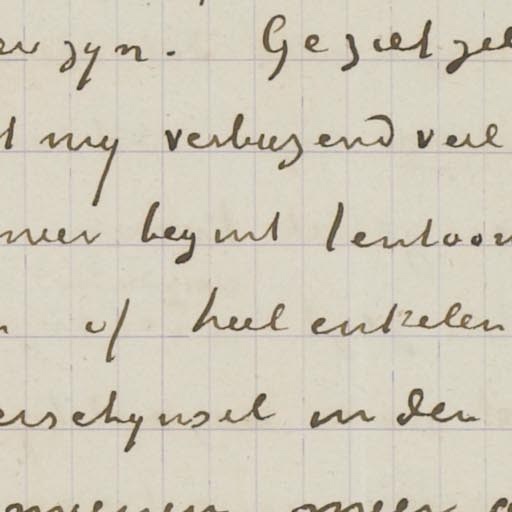 er zyn. Ge ziet zel
t my verbazend veel
meer begint tentoon
n of heel enkelen
erschynsel in den
meer